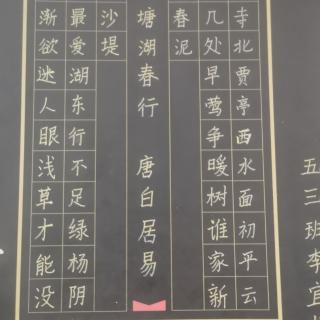 五三班李宜
寺北贾亭西水面初平云
几处早莺争暖树谁家新
春泥
塘湖春行 唐白居易
沙堤
最爱湖东行不足绿杨阴
渐欲迷人眼浅草才能没